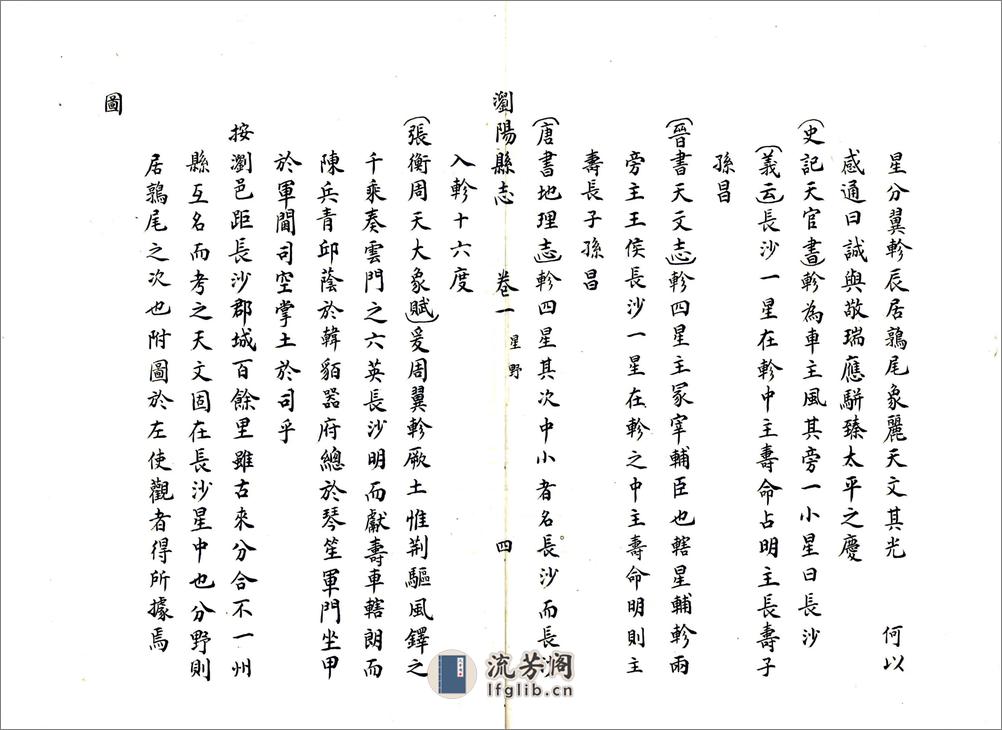 星分翼軫辰居鶉尾象麗天文其光 何以
感通曰誠與敬瑞應駢臻太平之慶
(史記天官書)軫為車主風其旁一小星曰長沙
(義云)長沙一星在軫中主壽命占明主長壽子
孫昌
(晉書天文志)軫四星主冢宰輔臣也轄星輔軫兩
旁主王侯長沙一星在軫之中主壽命明則主
壽長子孫昌
(唐書地理志)軫四星其次中小者名長沙而長沙
瀏陽縣志 卷一 星野 四
入軫十六度
(張衡周天大象賦)爰周翼軫厥土惟荆驅風鐸之
千乘奏雲門之六英長沙明而獻壽車轄朗而
陳兵青邱蔭於韓貊器府總於琴笙軍門坐甲
於軍閫司空掌土於司乎
按瀏邑距長沙郡城百餘里雖古來分合不一州
縣互名而考之天文固在長沙星中也分野則
居鶉尾之次也附圖於左使觀者得所據焉
圖
流芳阁
lfglib.cn